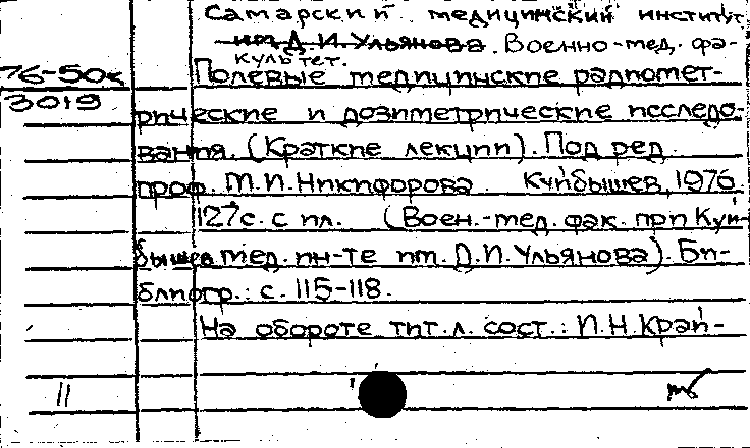 Самарский медицинский институт
им. Д.И. Ульянова. Военно-мед. фа-
культет.
76-50к
3019
Полевые медицинские радиомет-
рические и дозиметрические исследо-
вания. (Краткие лекции). Под ред.
проф. М.И. Никифорова. Куйбышев, 1976.
127с. с ил. (Воен.-мед. фак. при Куй-
бышев. мед. ин-те им. Д.И. Ульянова). Би-
блиогр.: с. 115-118.
На обороте тит. л. сост.: И.Н. Край-
11